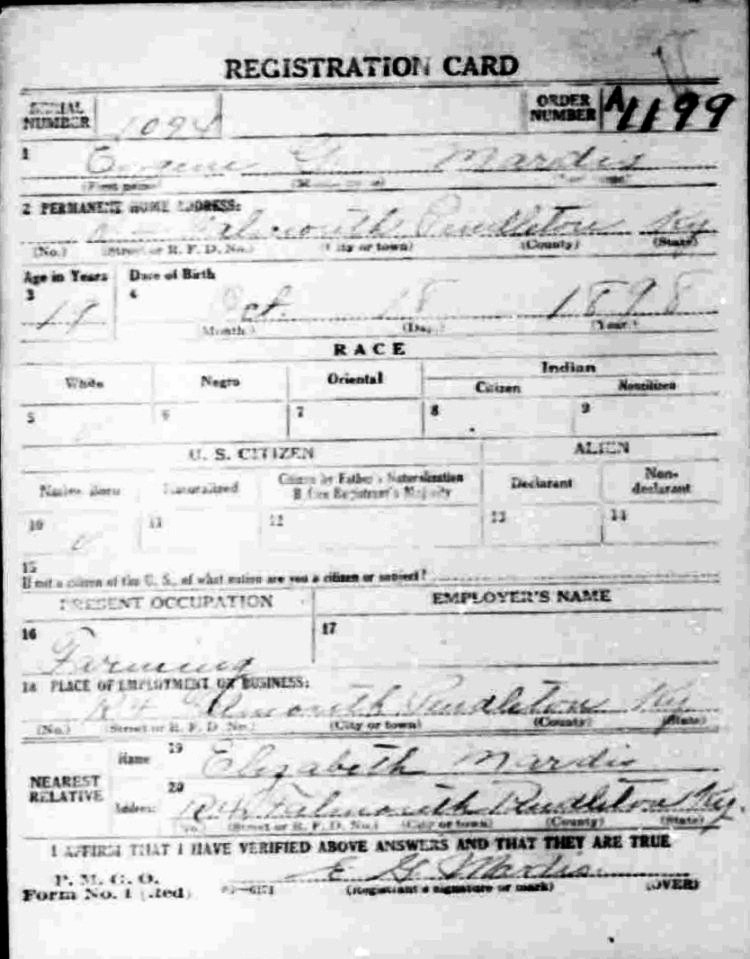 REGISTRATION CARD
SERIAL NUMBER 1094 ORDER NUMBER A1199
1 Eugene G Mardis
(First name) (Middle name) (Last name)
2 PERMANENT HOME ADDRESS:
Falmouth Pendleton Ky
(No.) (Street or R. F. D. No.) (City or town) (County) (State)
Age in Years Date of Birth
3 4
19 Oct. 18 1898
(Month.) (Day.) (Year.)
RACE
White Negro Oriental Indian
Citizen Noncitizen
5 6 7 8 9
U. S. CITIZEN ALIEN
Native Born Naturalized Citizen by Father's Naturalization Before Registrant's Majority Declarant Non-declarant
10 11 12 13 14
15
If not a citizen of the U. S., of what nation are you a citizen or subject?
PRESENT OCCUPATION EMPLOYER'S NAME
16 17
Farming
18 PLACE OF EMPLOYMENT OR BUSINESS:
R4 Falmouth Pendleton Ky
(No.) (Street or R. F. D. No.) (City or town) (County) (State)
NEAREST RELATIVE
Name 19 Elizabeth Mardis
Address 20 R4 Falmouth Pendleton Ky.
(No.) (Street or R. F. D. No.) (City or town) (County) (State)
I AFFIRM THAT I HAVE VERIFIED ABOVE ANSWERS AND THAT THEY ARE TRUE
E G Mardis
P. M. G. O.
Form No. 1 (Red) (Registrant's signature or mark) (OVER)